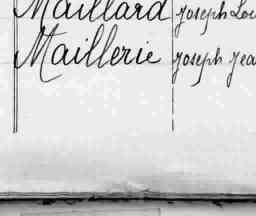 Maillard Joseph Lou
Maillerie Joseph Jea